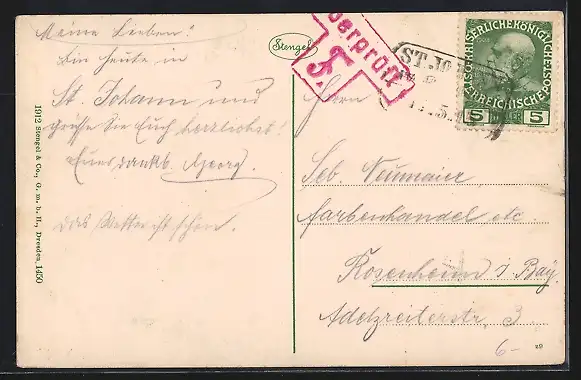 Meine Lieben!
Bin heute in
St. Johann und
grüsse Sie Euch herzlichst!
Euer dankb. Georg.
das Wetter ist schön.
1912 Stengel & Co., G. m. b. H., Dresden 1450
Stengel
Überprüft
5.
ST. JO
KAISERLICHE KÖNIGL
ÖSTERREICHISCHE POST
5 HELLER 5
Herrn
Seb. Neumaier
Farbenhandel etc.
Rosenheim i/Bay.
Adlzreiterstr. 3.
6-
29